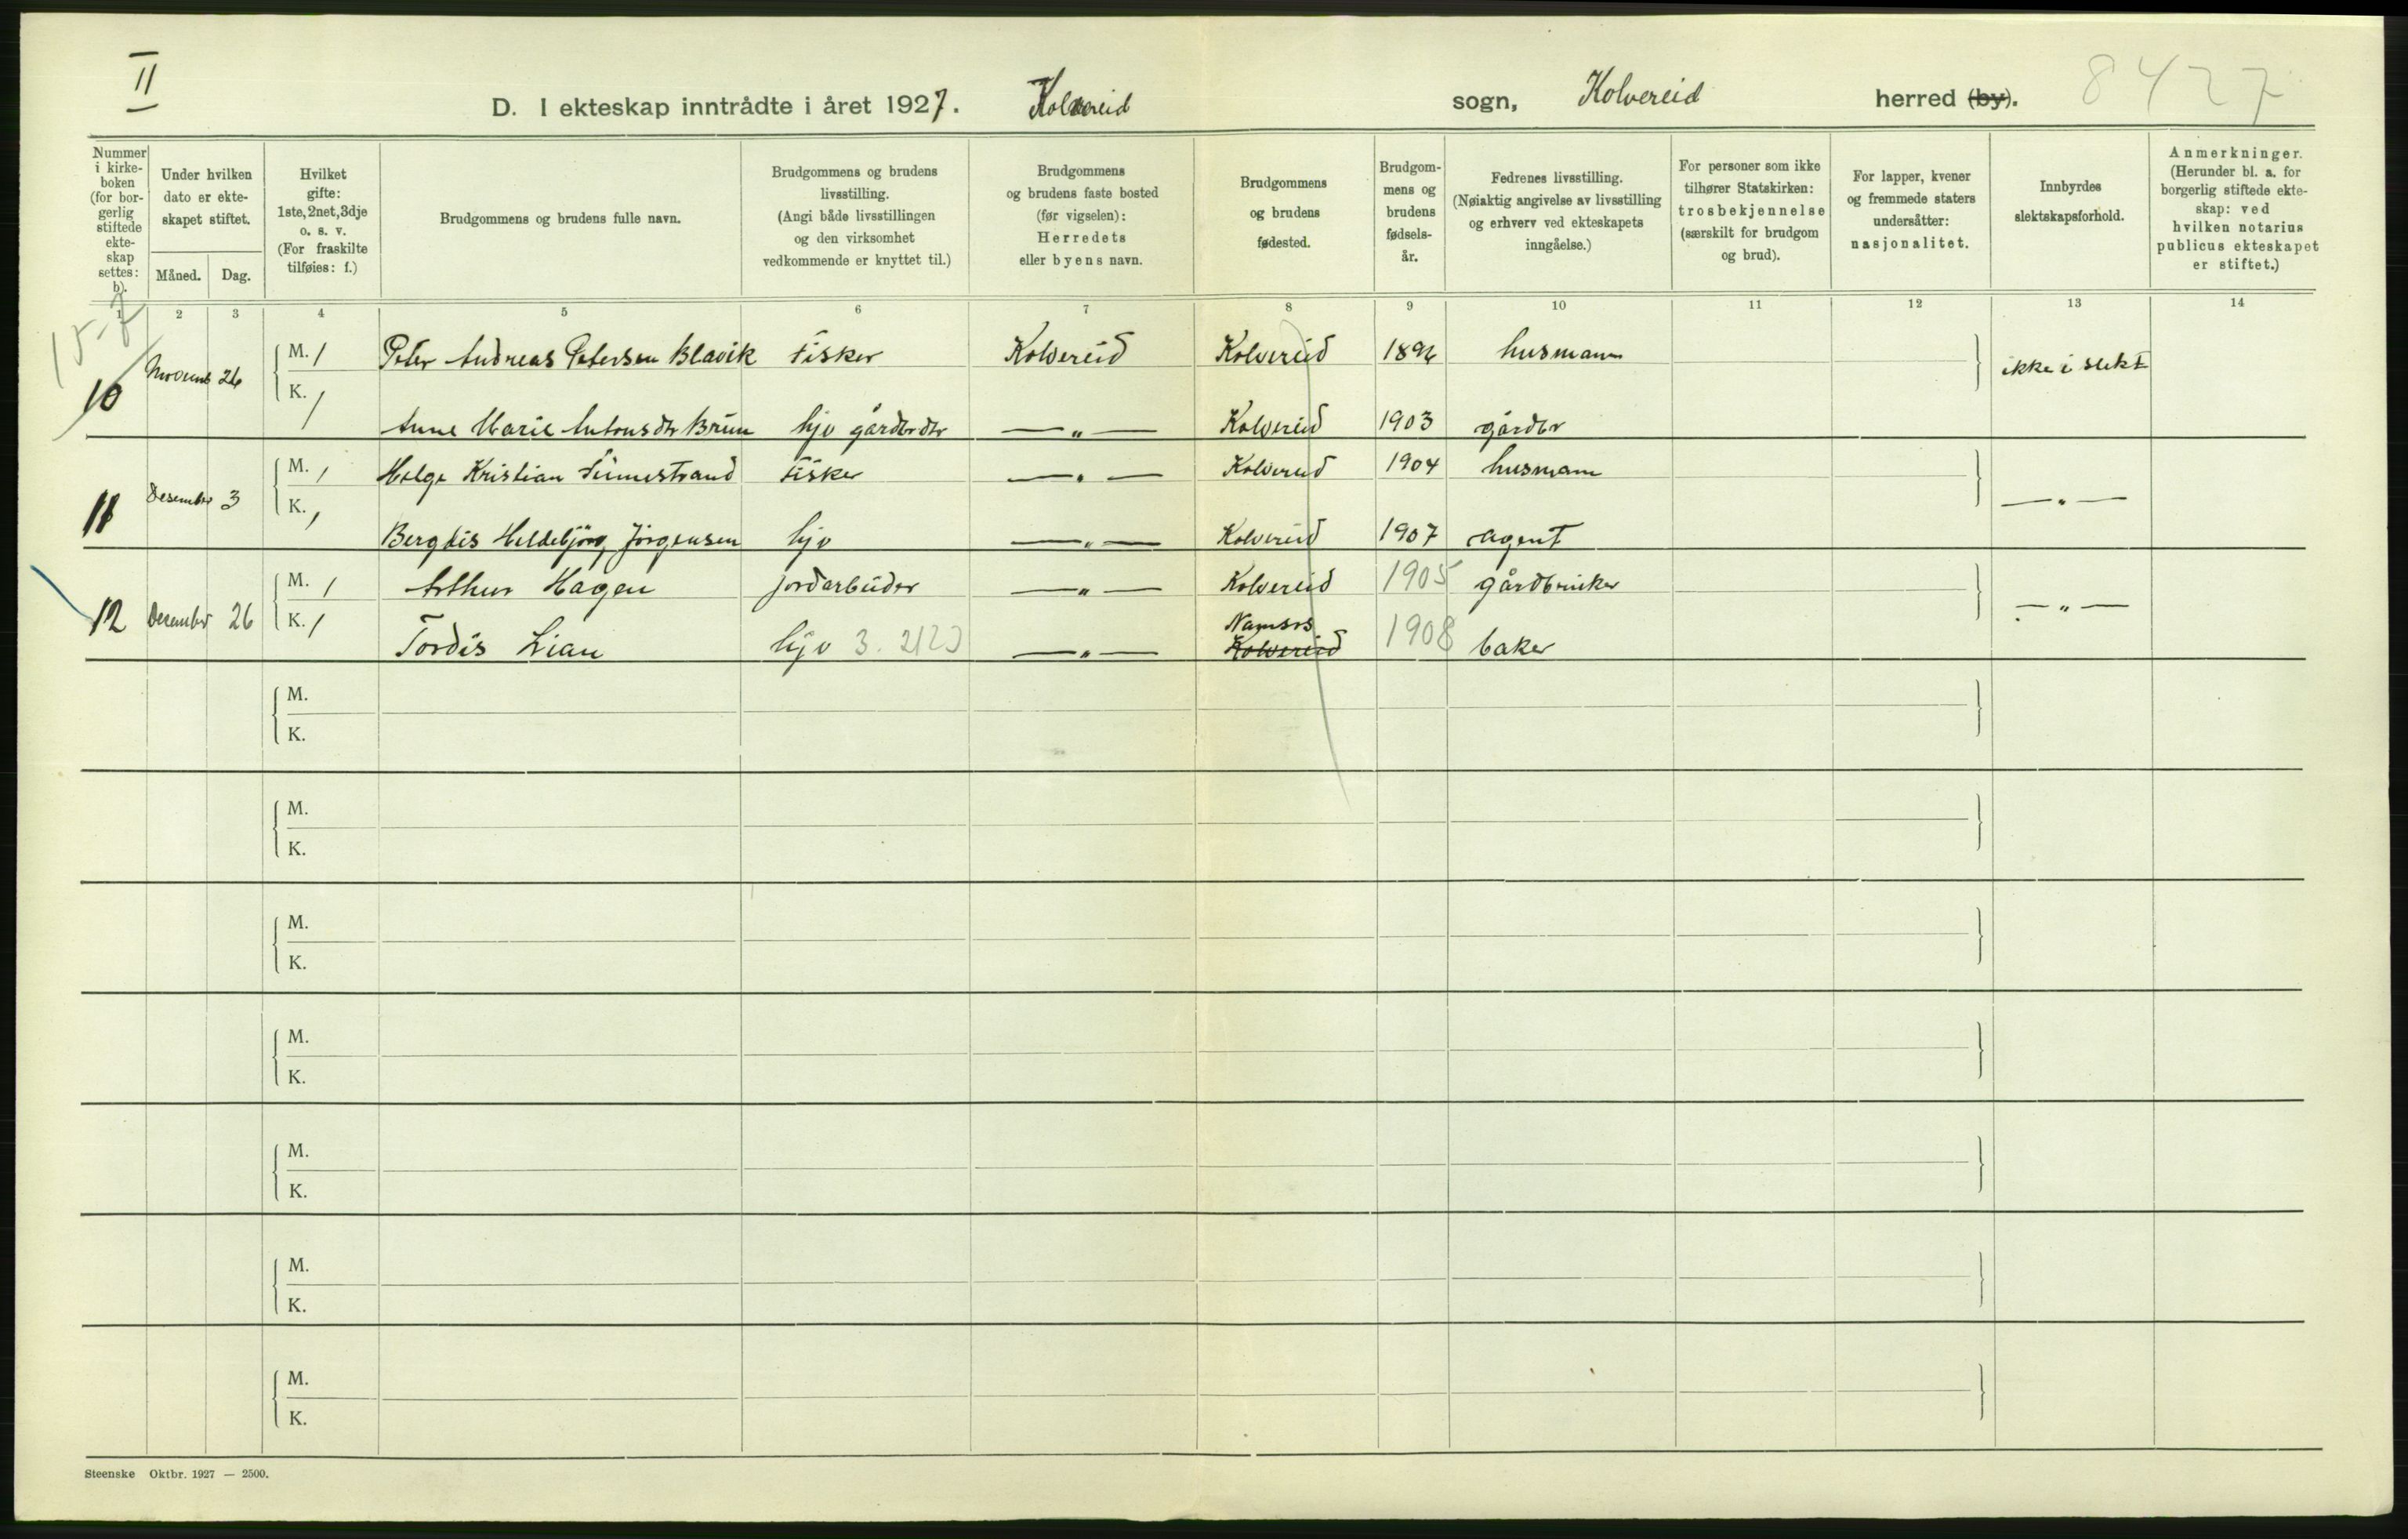 II
D. I ekteskap inntrådte i året 1927. Kolvereid sogn, Kolvereid herred (by). 8427
Nummer i kirke-boken (for bor-gerlig stiftede ekte-skap settes: b).
Under hvilken dato er ekte-skapet stiftet.
Måned. Dag.
Hvilket gifte: 1ste, 2net, 3dje o. s. v. (For fraskilte tilføies: f.)
Brudgommens og brudens fulle navn.
Brudgommens og brudens livsstilling. (Angi både livsstillingen og den virksomhet vedkommende er knyttet til.)
Brudgommens og brudens faste bosted (før vigselen): Herredets eller byens navn.
Brudgommens og brudens fødested.
Brudgom-mens og brudens fødsels-år.
Fedrenes livsstilling. (Nøiaktig angivelse av livsstilling og erhverv ved ekteskapets inngåelse.)
For personer som ikke tilhører Statskirken: trosbekjennelse (særskilt for brudgom og brud).
For lapper, kvener og fremmede staters undersåtter: nasjonalitet.
Innbyrdes slektskapsforhold.
Anmerkninger. (Herunder bl. a. for borgerlig stiftede ekte-skap: ved hvilken notarius publicus ekteskapet er stiftet.)
1 2 3 4 5 6 7 8 9 10 11 12 13 14
15-7
10 Novemb 26 M. 1 Peter Andreas Petersen Blavik fisker Kolvereid Kolvereid 1896 husmann ikke i slekt
K. 1 Anne Marie Antonsdtr Brun hjv gårdbrdtr —"— Kolvereid 1903 gårdbr
11 Desember 3 M. 1 Helge Kristian Finnestrand fisker —"— Kolvereid 1904 husmann —"—
K. 1 Bergdis Heldebjörg Jörgensen hjv —"— Kolvereid 1907 agent
12 Desember 26 M. 1 Arthur Hagen jordarbeider —"— Kolvereid 1905 gårdbruker —"—
K. 1 Tordis Lian hjv 3. —"— Namsos Kolvereid 1908 baker
M.
K.
M.
K.
M.
K.
M.
K.
M.
K.
M.
K.
M.
K.
Steenske Oktbr. 1927 — 2500.